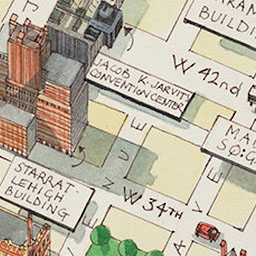 BUILDIN
JACOB K. JAVITS
CONVENTION CENTER
W 42nd
MA
SQ. G
STARRAT-
LEHIGH
BUILDING
W 34TH